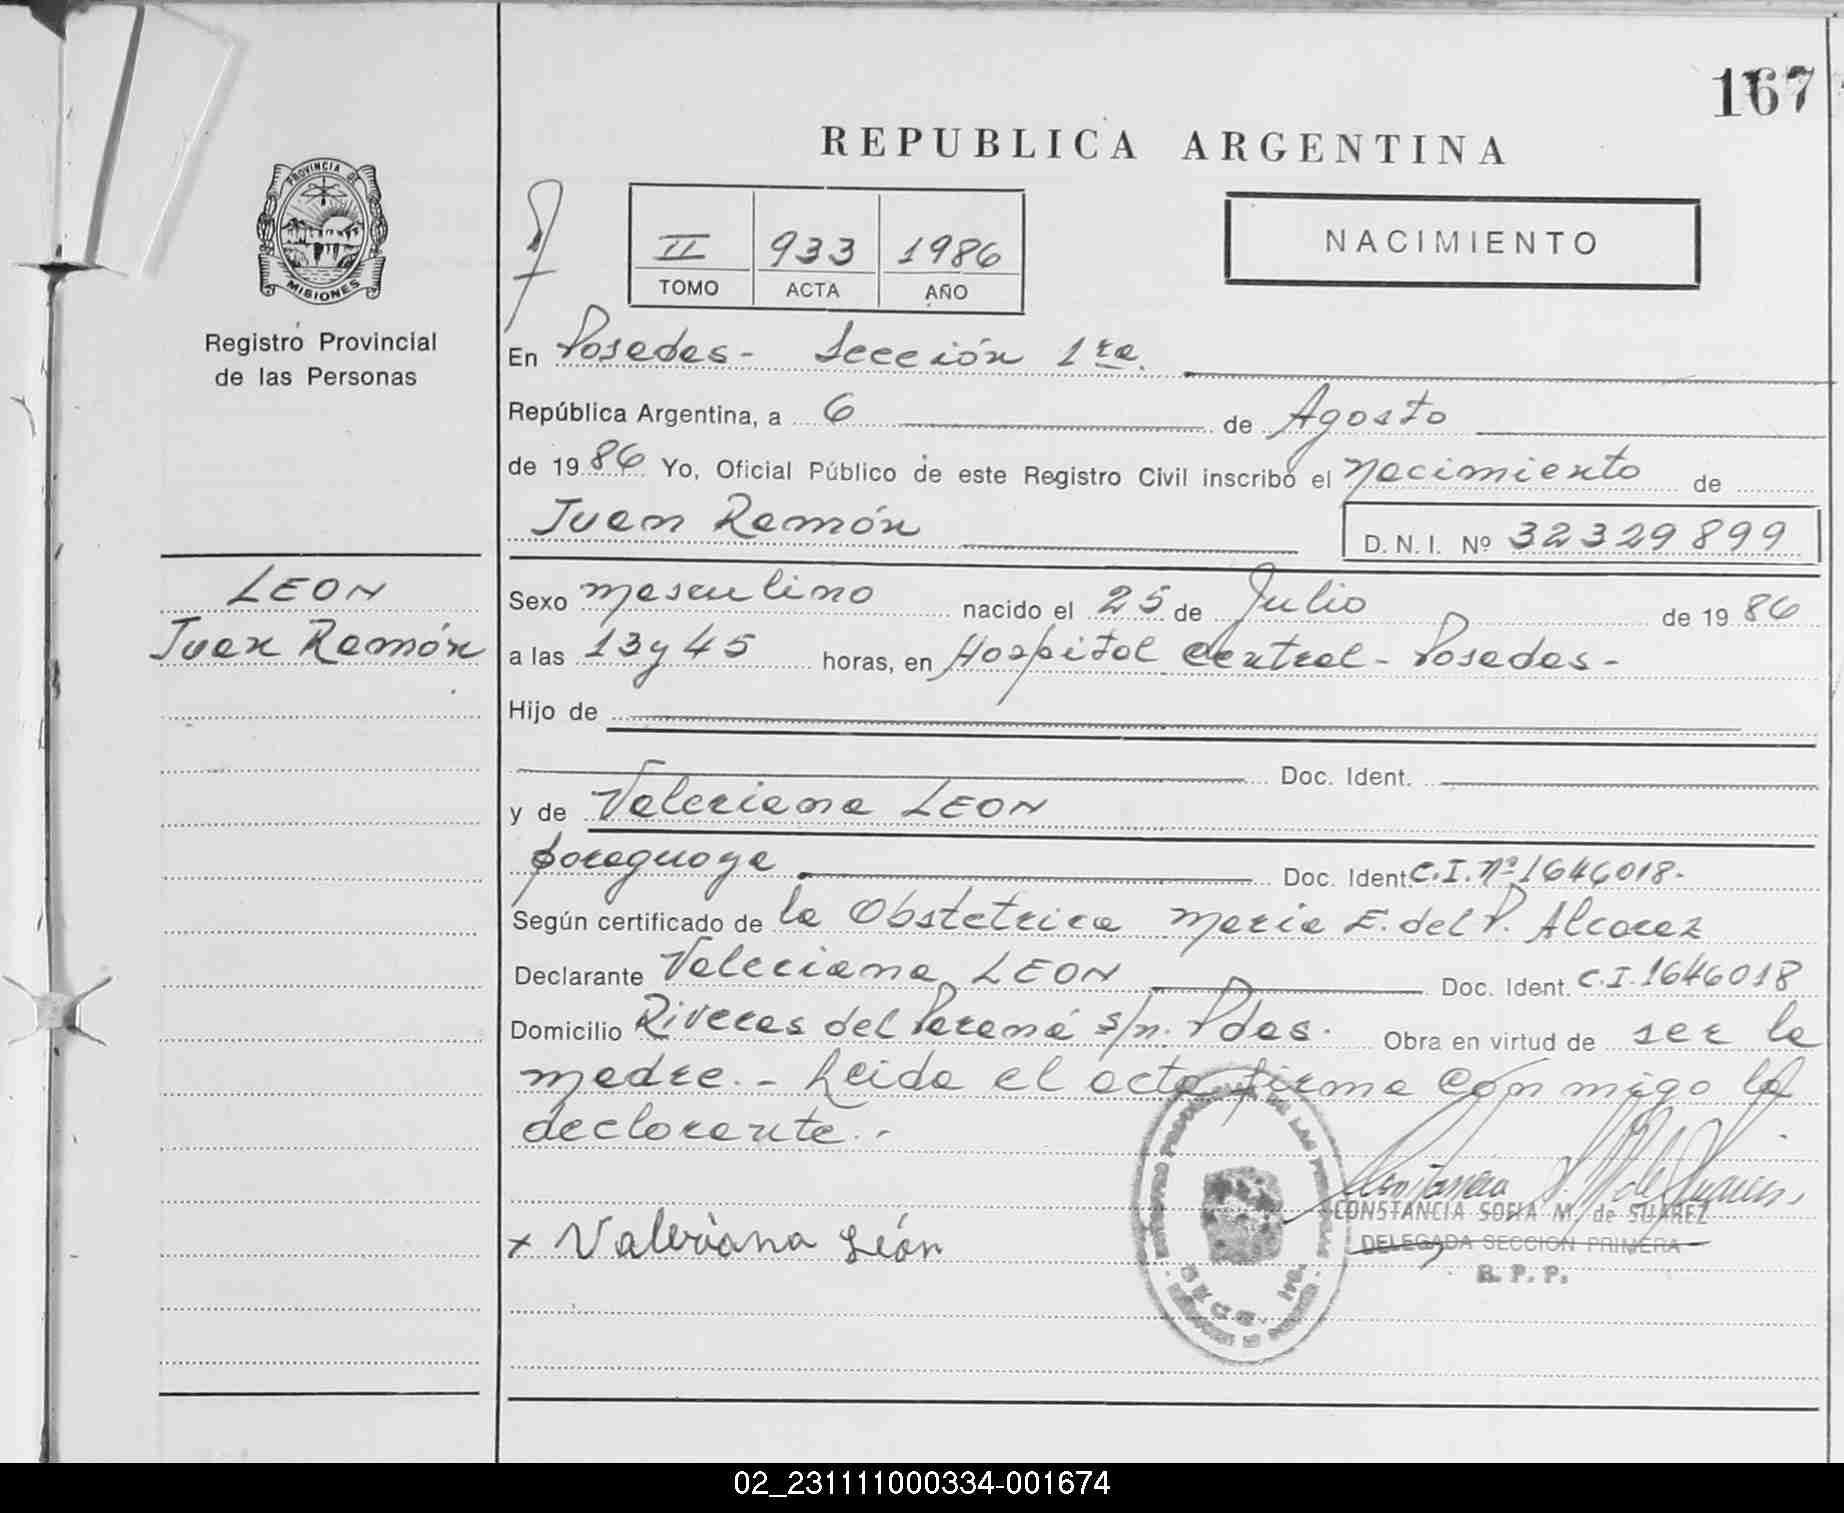 167
REPUBLICA ARGENTINA
PROVINCIA DE
MISIONES
Registro Provincial
de las Personas
II 933 1986
TOMO ACTA AÑO
NACIMIENTO
En Posadas - Sección 1ra.
República Argentina, a 6 de Agosto
de 1986 Yo, Oficial Público de este Registro Civil inscribo el nacimiento de
Juan Ramón
D.N.I. Nº 32329899
LEON
Juan Ramón
Sexo masculino nacido el 25 de Julio de 1986
a las 13 y 45 horas, en Hospital Central - Posadas -
Hijo de
Doc. Ident.
y de Valeriana LEON
paraguaya Doc. Ident. C.I. Nº 1646018-
Según certificado de la Obstetrica Maria E. del P. Alcaraz
Declarante Valeriana LEON Doc. Ident. C.I. 1646018
Domicilio Riveras del Paraná s/n. Pdas. Obra en virtud de ser la
madre. - Leida el acta firma con migo la
declarante. -
x Valeriana León
CONSTANCIA SOFIA M. de SUAREZ
DELEGADA SECCION PRIMERA
R. P. P.
02_231111000334-001674